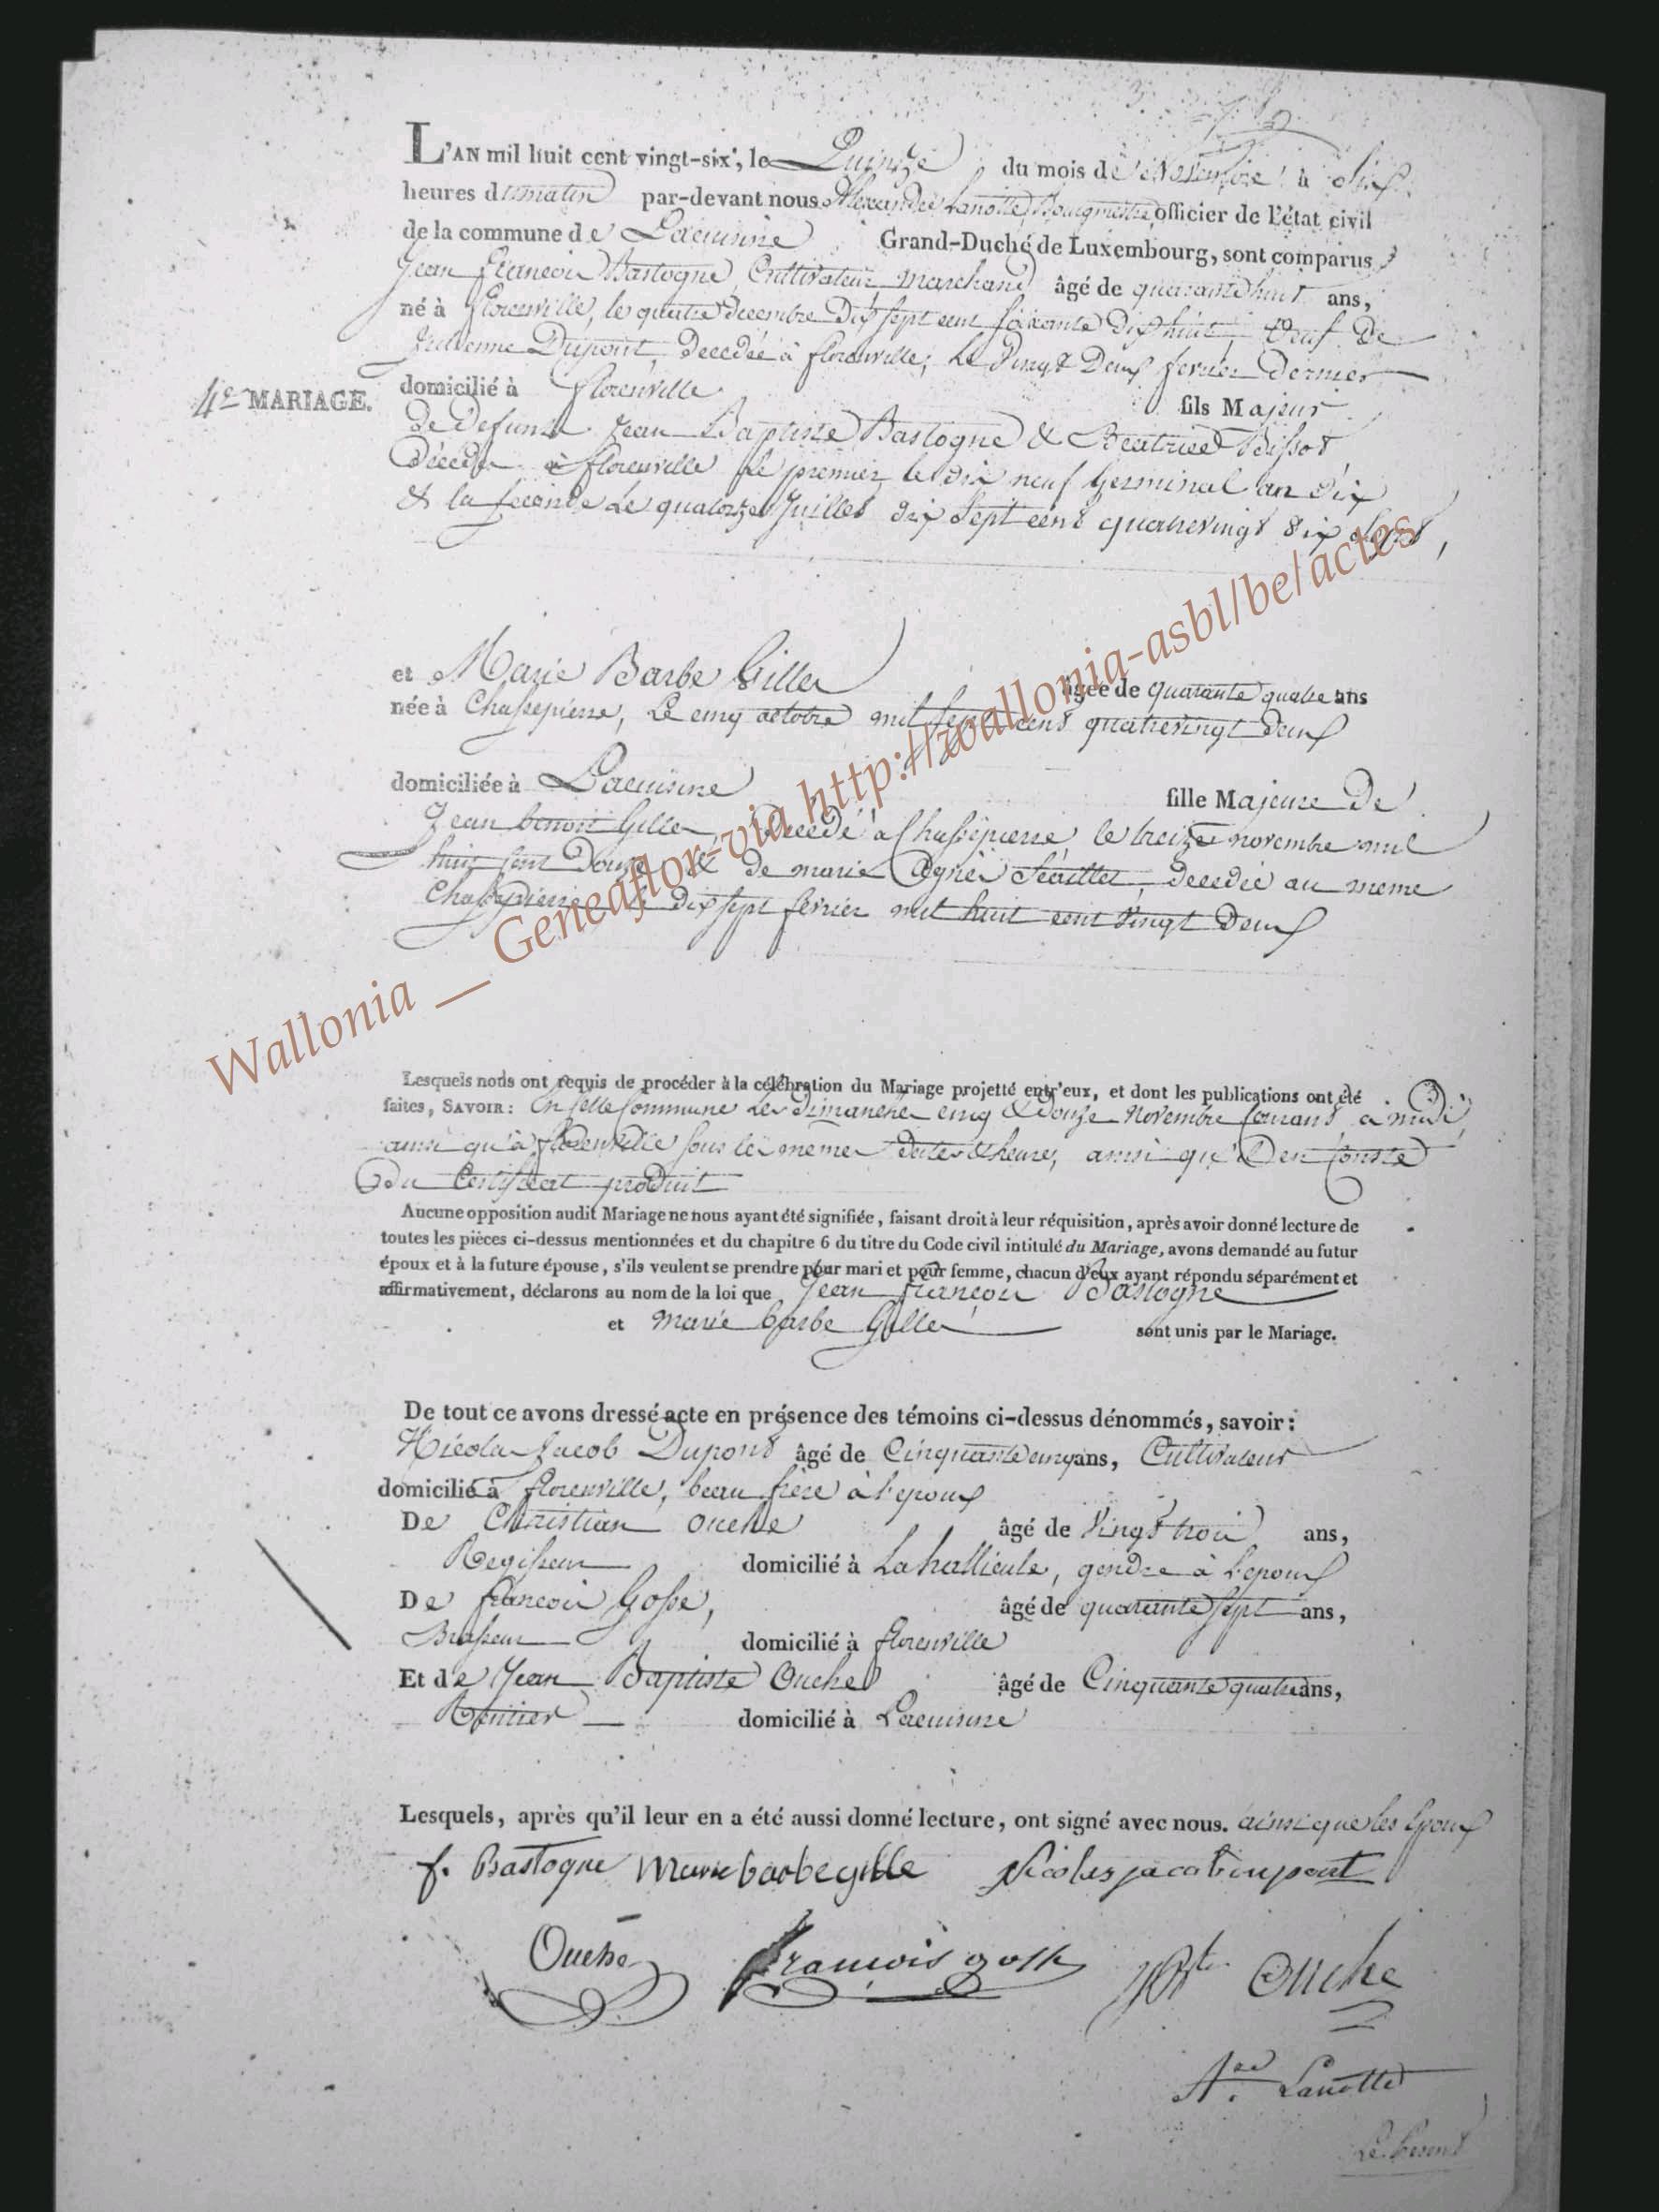 L'AN mil huit cent vingt-six, le Quinze du mois de Novembre à dix
heures du matin par-devant nous Alexandre Lanotte Bourgmestre officier de l'état civil
de la commune de Lacuisine Grand-Duché de Luxembourg, sont comparus
Jean François Bastogne, Cultivateur marchand âgé de quarante huit ans,
né à florenville, le quatre decembre Dix sept cent soixante dix huit, veuf De
Dupont, Decedée à florenville, Le Vingt Deux fevrier Dernier
4e MARIAGE.
domicilié à florenville fils Majeur
De Defunts Jean Baptiste Bastogne & Beatrice Bissot
Décédés à florenville Le premier le dix neuf Germinal an dix
& la seconde Le quatorze Juillet dix sept cent quatrevingt dix sept,
et Marie Barbe Gilles âgée de quarante quatre ans
née à Chassepierre, Le cinq octobre mil sept cent quatrevingt Deux
domiciliée à Lacuisine fille Majeure De
Jean benoit Gilles, Decedé à Chassepierre, le treize novembre mil
huit cent Douze & de marie Agnès decedée au meme
Chassepierre le dix sept fevrier mil huit cent Vingt Deux
Lesquels nous ont requis de procéder à la célébration du Mariage projetté entr'eux, et dont les publications ont été
faites, SAVOIR: En cette Commune Les Dimanches cinq & Douze Novembre Courant à midi
ainsi qu'à florenville sous les memes dates & heure, ainsi qu'il en Conste
Du Certificat produit
Aucune opposition audit Mariage ne nous ayant été signifiée, faisant droit à leur réquisition, après avoir donné lecture de
toutes les pièces ci-dessus mentionnées et du chapitre 6 du titre du Code civil intitulé du Mariage, avons demandé au futur
époux et à la future épouse, s'ils veulent se prendre pour mari et pour femme, chacun d'eux ayant répondu séparément et
affirmativement, déclarons au nom de la loi que Jean François Bastogne
et marie barbe Gilles sont unis par le Mariage.
De tout ce avons dressé acte en présence des témoins ci-dessus dénommés, savoir:
Nicolas Jacob Dupont âgé de Cinquante cinq ans, Cultivateur
domicilié à florenville, beau frère à l'epoux
De Christian Ouche âgé de Vingt trois ans,
Regisseur domicilié à Lahailleule, gendre à l'epoux
De françois Gosse, âgé de quarante sept ans,
Brasseur domicilié à florenville
Et de Jean Baptiste Ouche âgé de Cinquante quatre ans,
Rentier domicilié à Lacuisine
Lesquels, après qu'il leur en a été aussi donné lecture, ont signé avec nous. ainsi que les Epoux
f. Bastogne Marie barbe gille Nicolas jacob dupont
Ouche françois goss JBte Ouche
Are Lanotte
Wallonia __ Geneaflor-via http://wallonia-asbl/be/actes